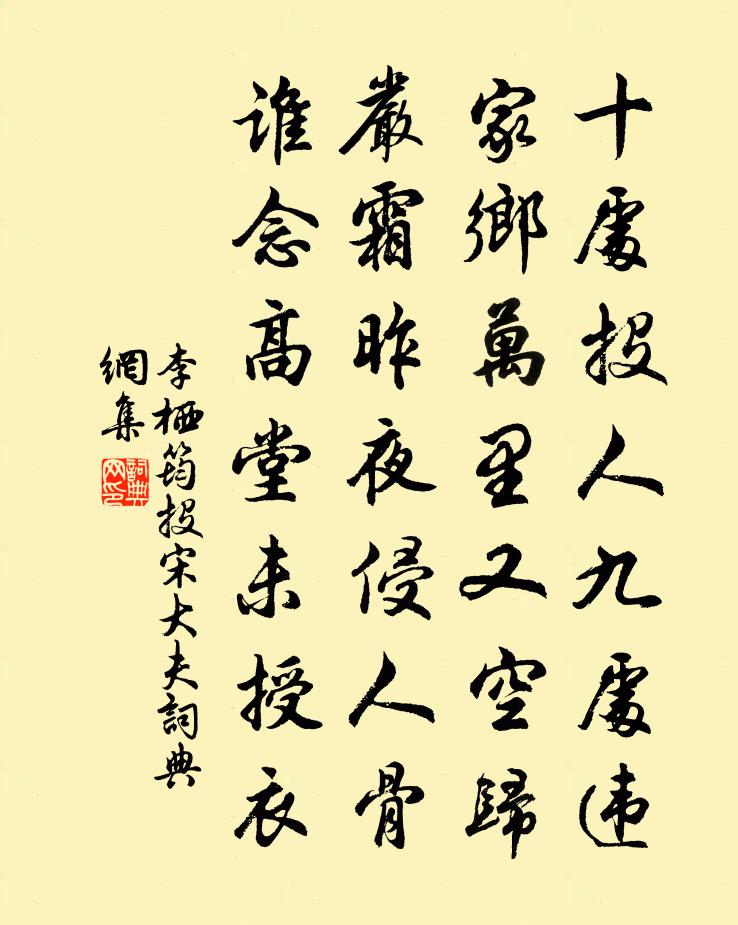 十處投人九處違
家鄉萬里又空歸
嚴霜昨夜侵人骨
誰念高堂未授衣
李栖筠投宋大夫詞典
網集
詞典網印